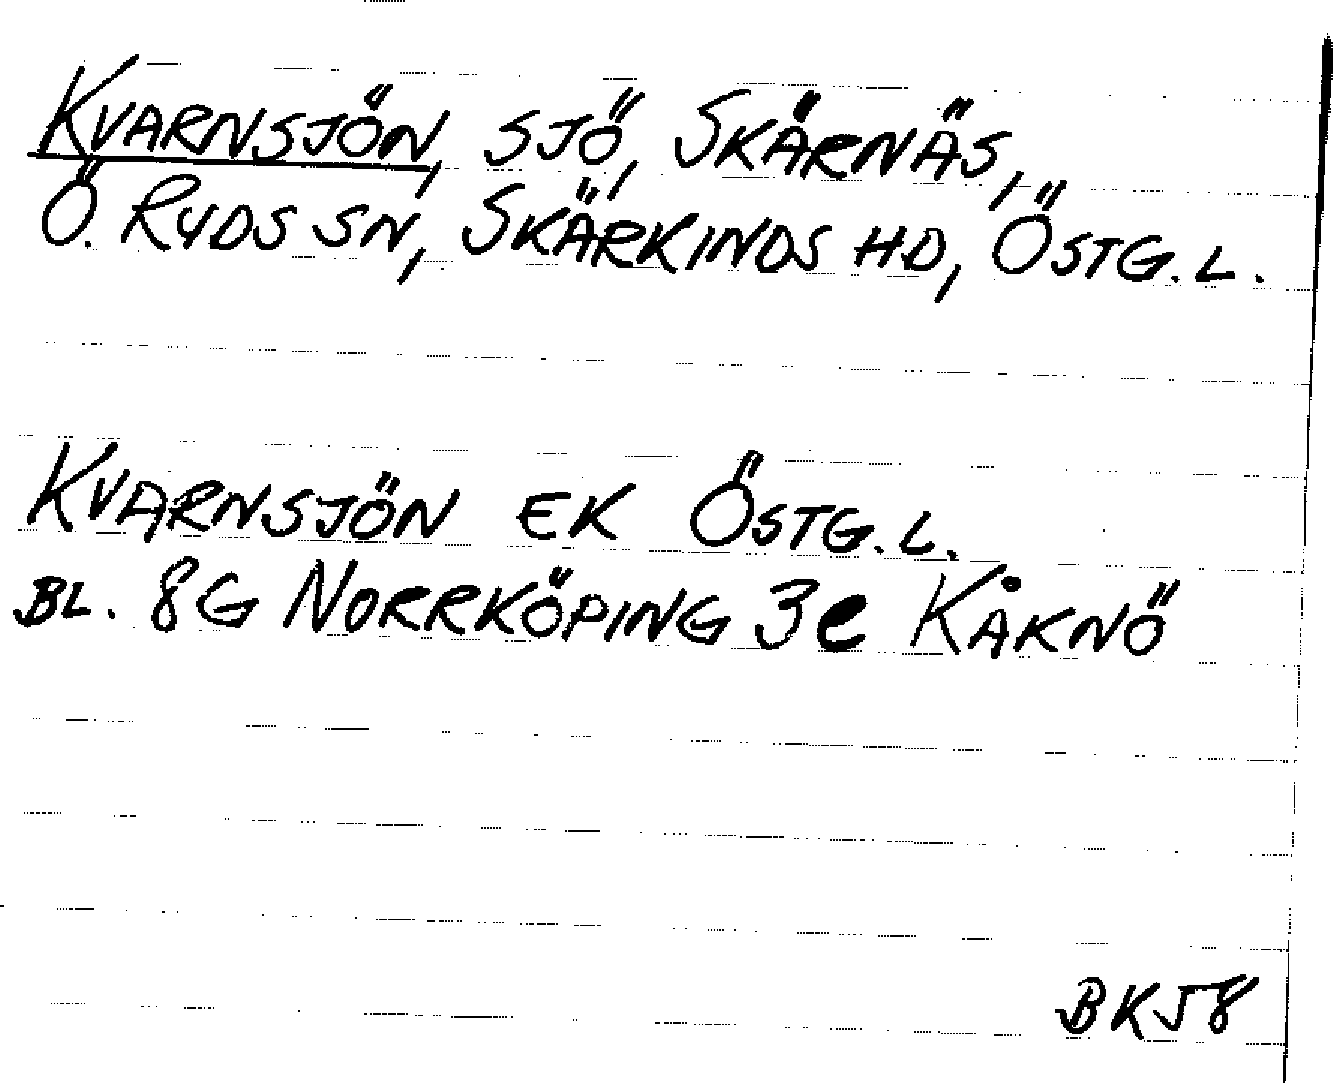 KVARNSJÖN, SJÖ, SKÄRNÄS,
Ö. RYDS SN, SKÄRKINDS HD, ÖSTG. L.
KVARNSJÖN EK ÖSTG. L.
BL. 8G NORRKÖPING 3e KÅKNÖ
BK58